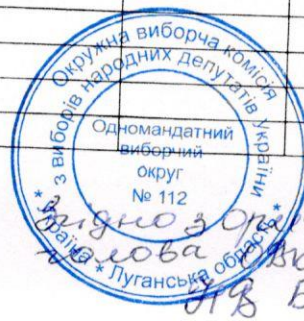 Окружна виборча комісія
з виборів народних депутатів України
Одномандатний
виборчий
округ
№ 112
* Україна * Луганська область *
Згідно з
голова ОВК